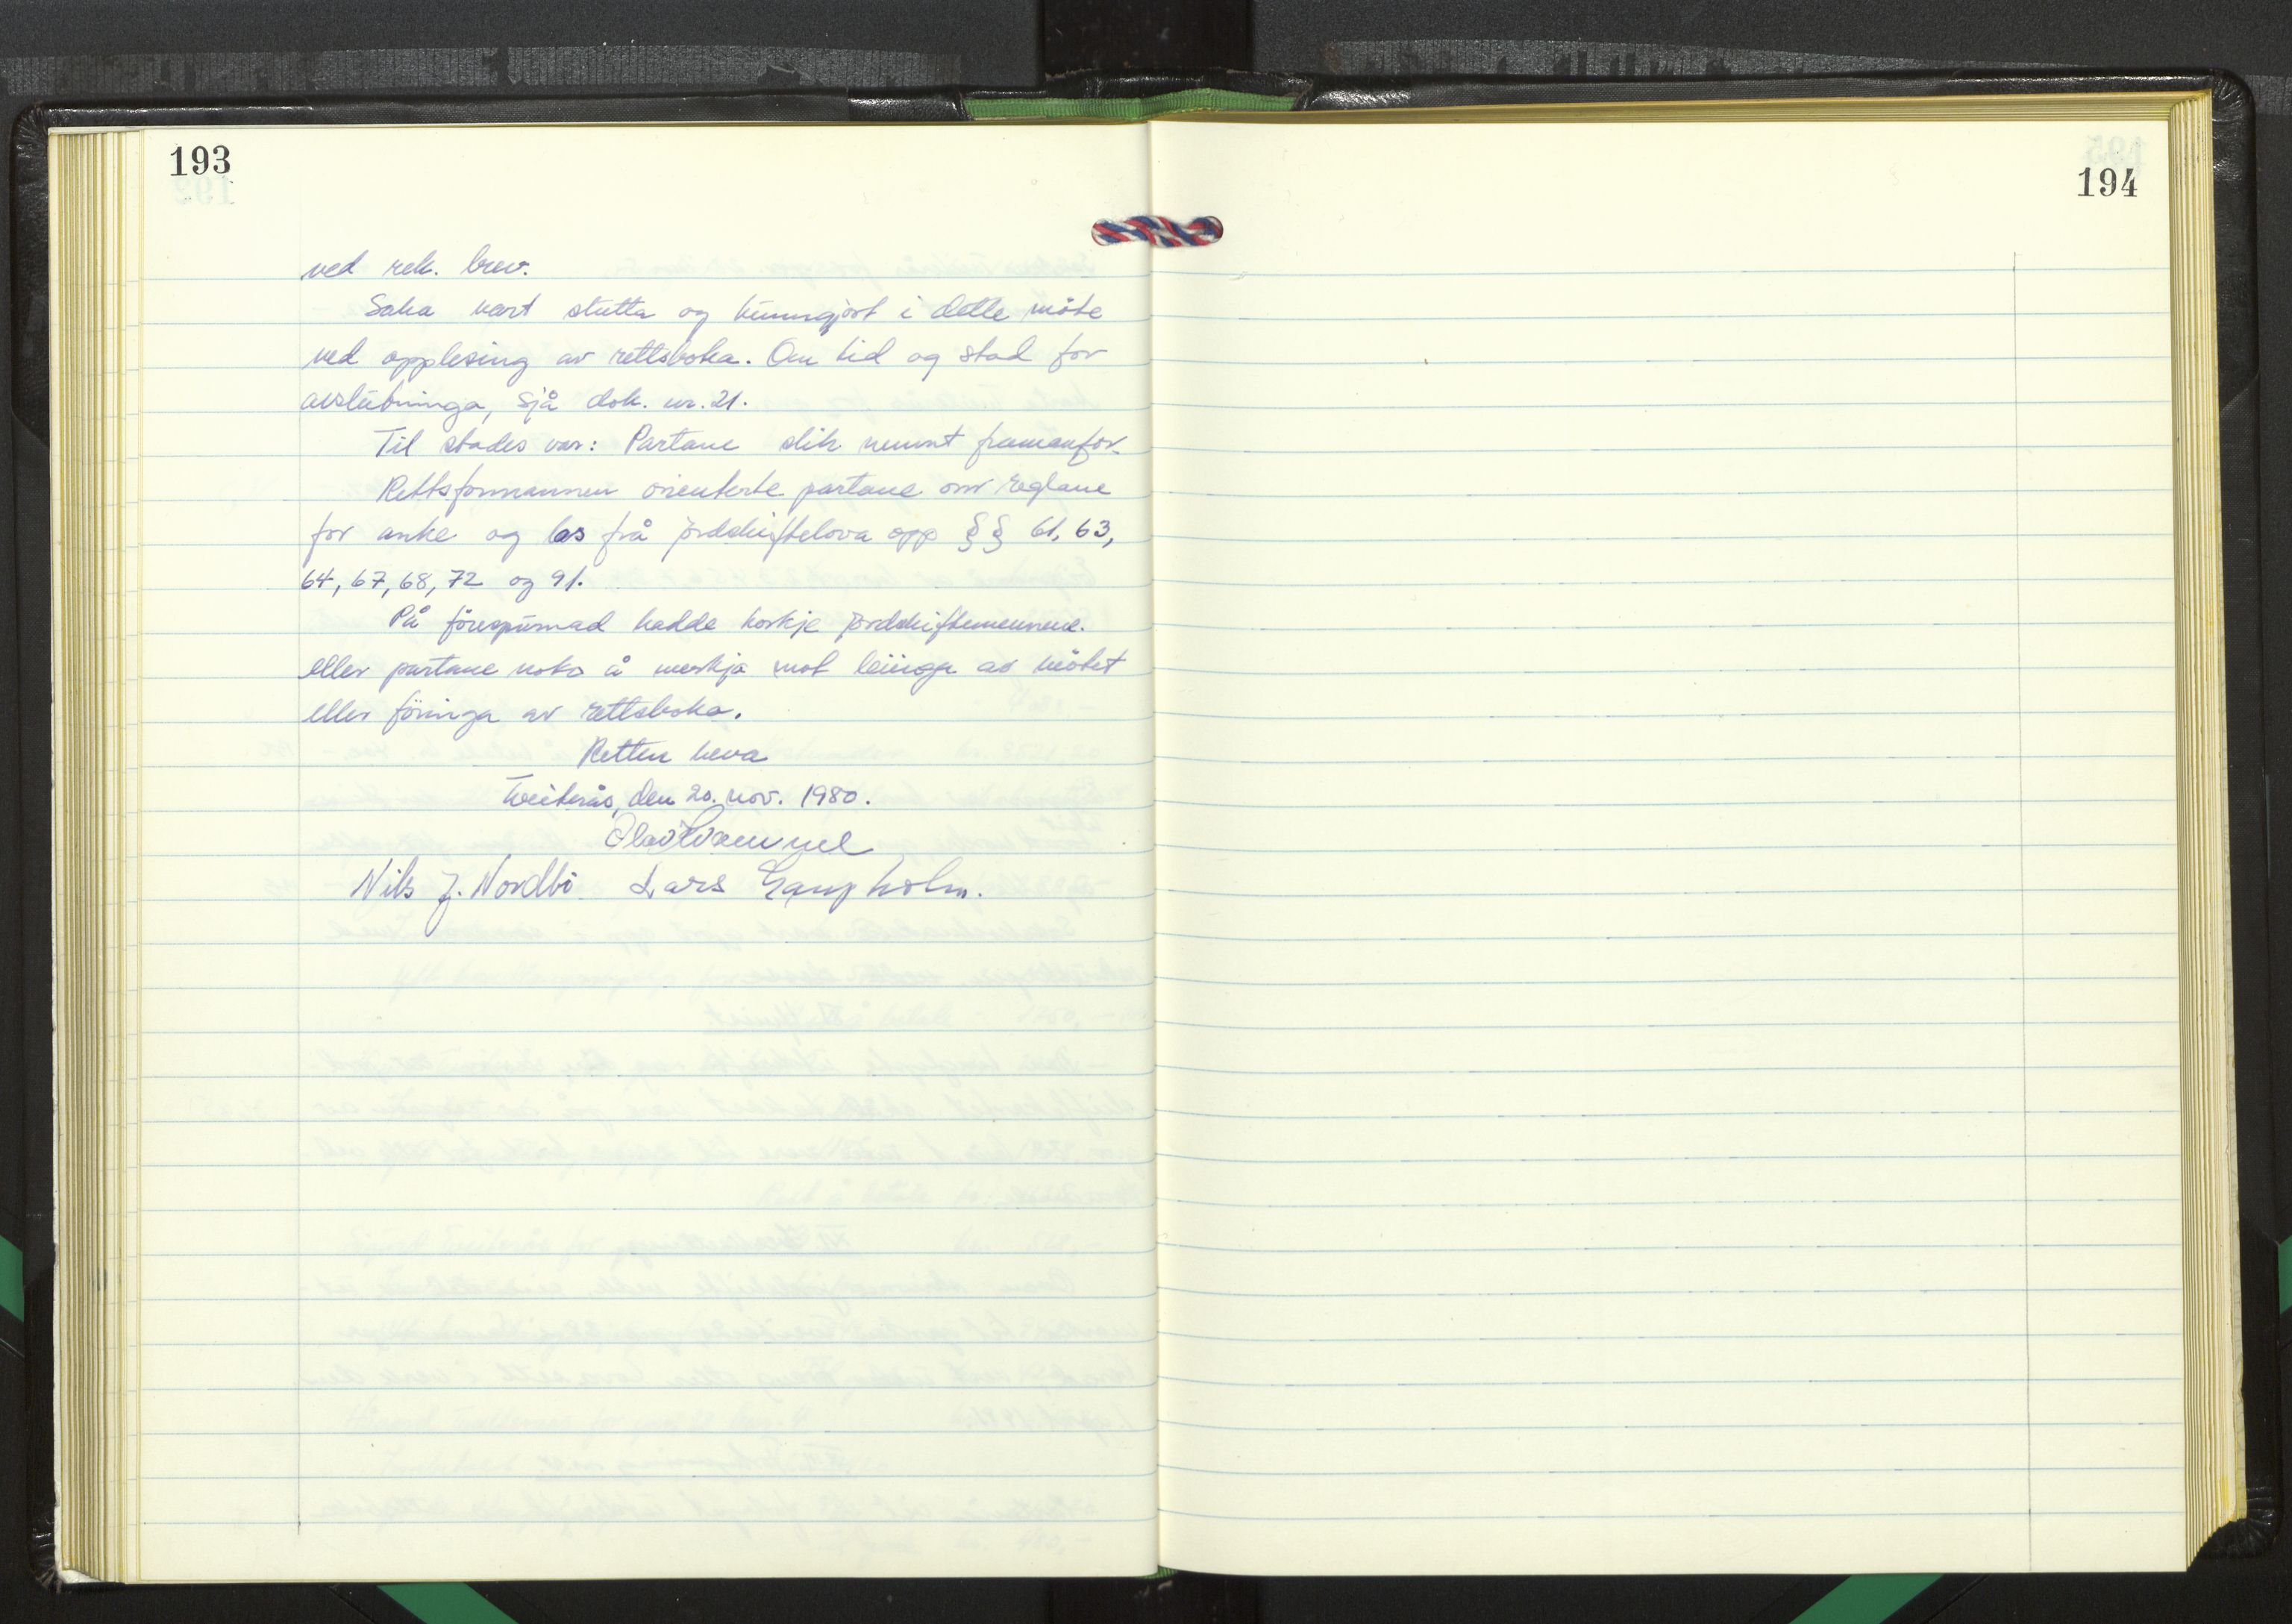 193
ved rek. brev.
Saka vart slutta og kunngjort i dette møte
ved opplesing av rettsboka. Om tid og stad for
avslutninga, sjå dok. nr. 21.
Til stades var: Partane slik nemnt framanfor.
Rettsformannen orienterte partane om reglane
for anke og las frå jordskiftelova opp §§ 61, 63,
64, 67, 68, 72 og 91.
På førespurnad hadde korkje jordskiftemennene
eller partane noko å merkja mot leiinga av møtet
eller føringa av rettsboka.
Retten heva
Tveiterås, den 20. nov. 1980.
Olav
Nils J. Nordbø Lars Gaupholm.
194